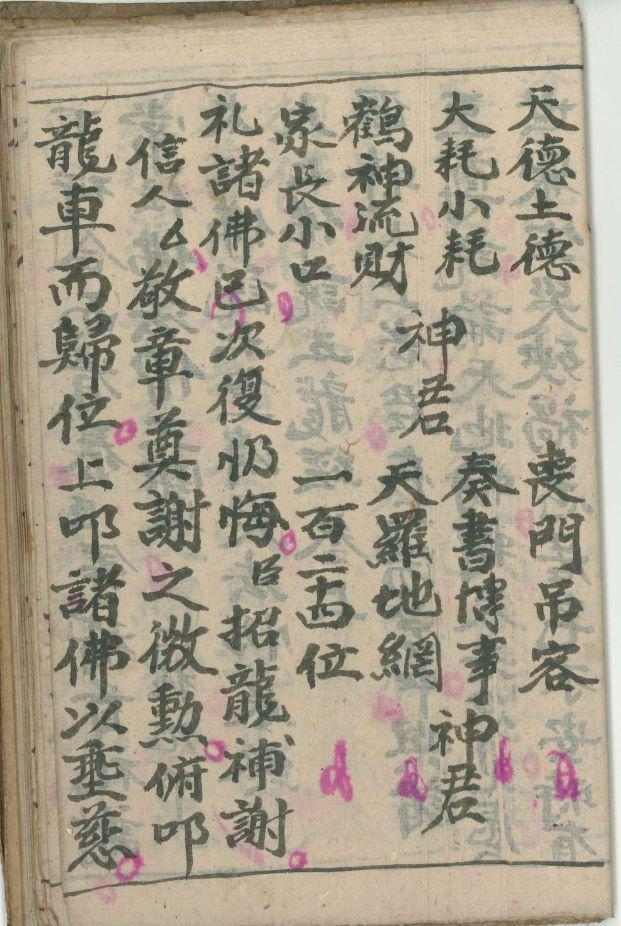 天德土德 喪門吊客
大耗小耗 神君 奏書博事 神君
鶴神流財 天羅地網
家長小口 一百二十四位
礼諸佛已次復仍悔臣招龍補謝
信人厶敬章奠謝之微勲俯叩
龍車而歸位上叩諸佛以垂慈